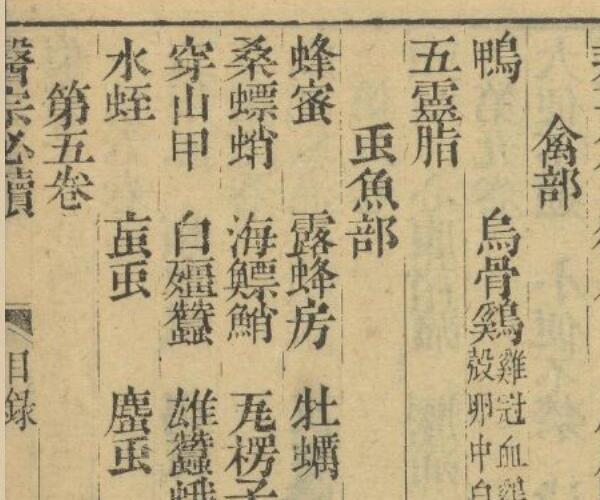 禽部
鴨 烏骨鷄 雞冠血 殼 卵中白
五靈脂
䖝魚部
蜂蜜 露蜂房 牡蠣
桑螵蛸 海鰾鮹 瓦楞子
穿山甲 白殭蠶 雄蠶蛾
水蛭 䖟䖝 䗪䖝
第五卷
醫宗必讀 目錄